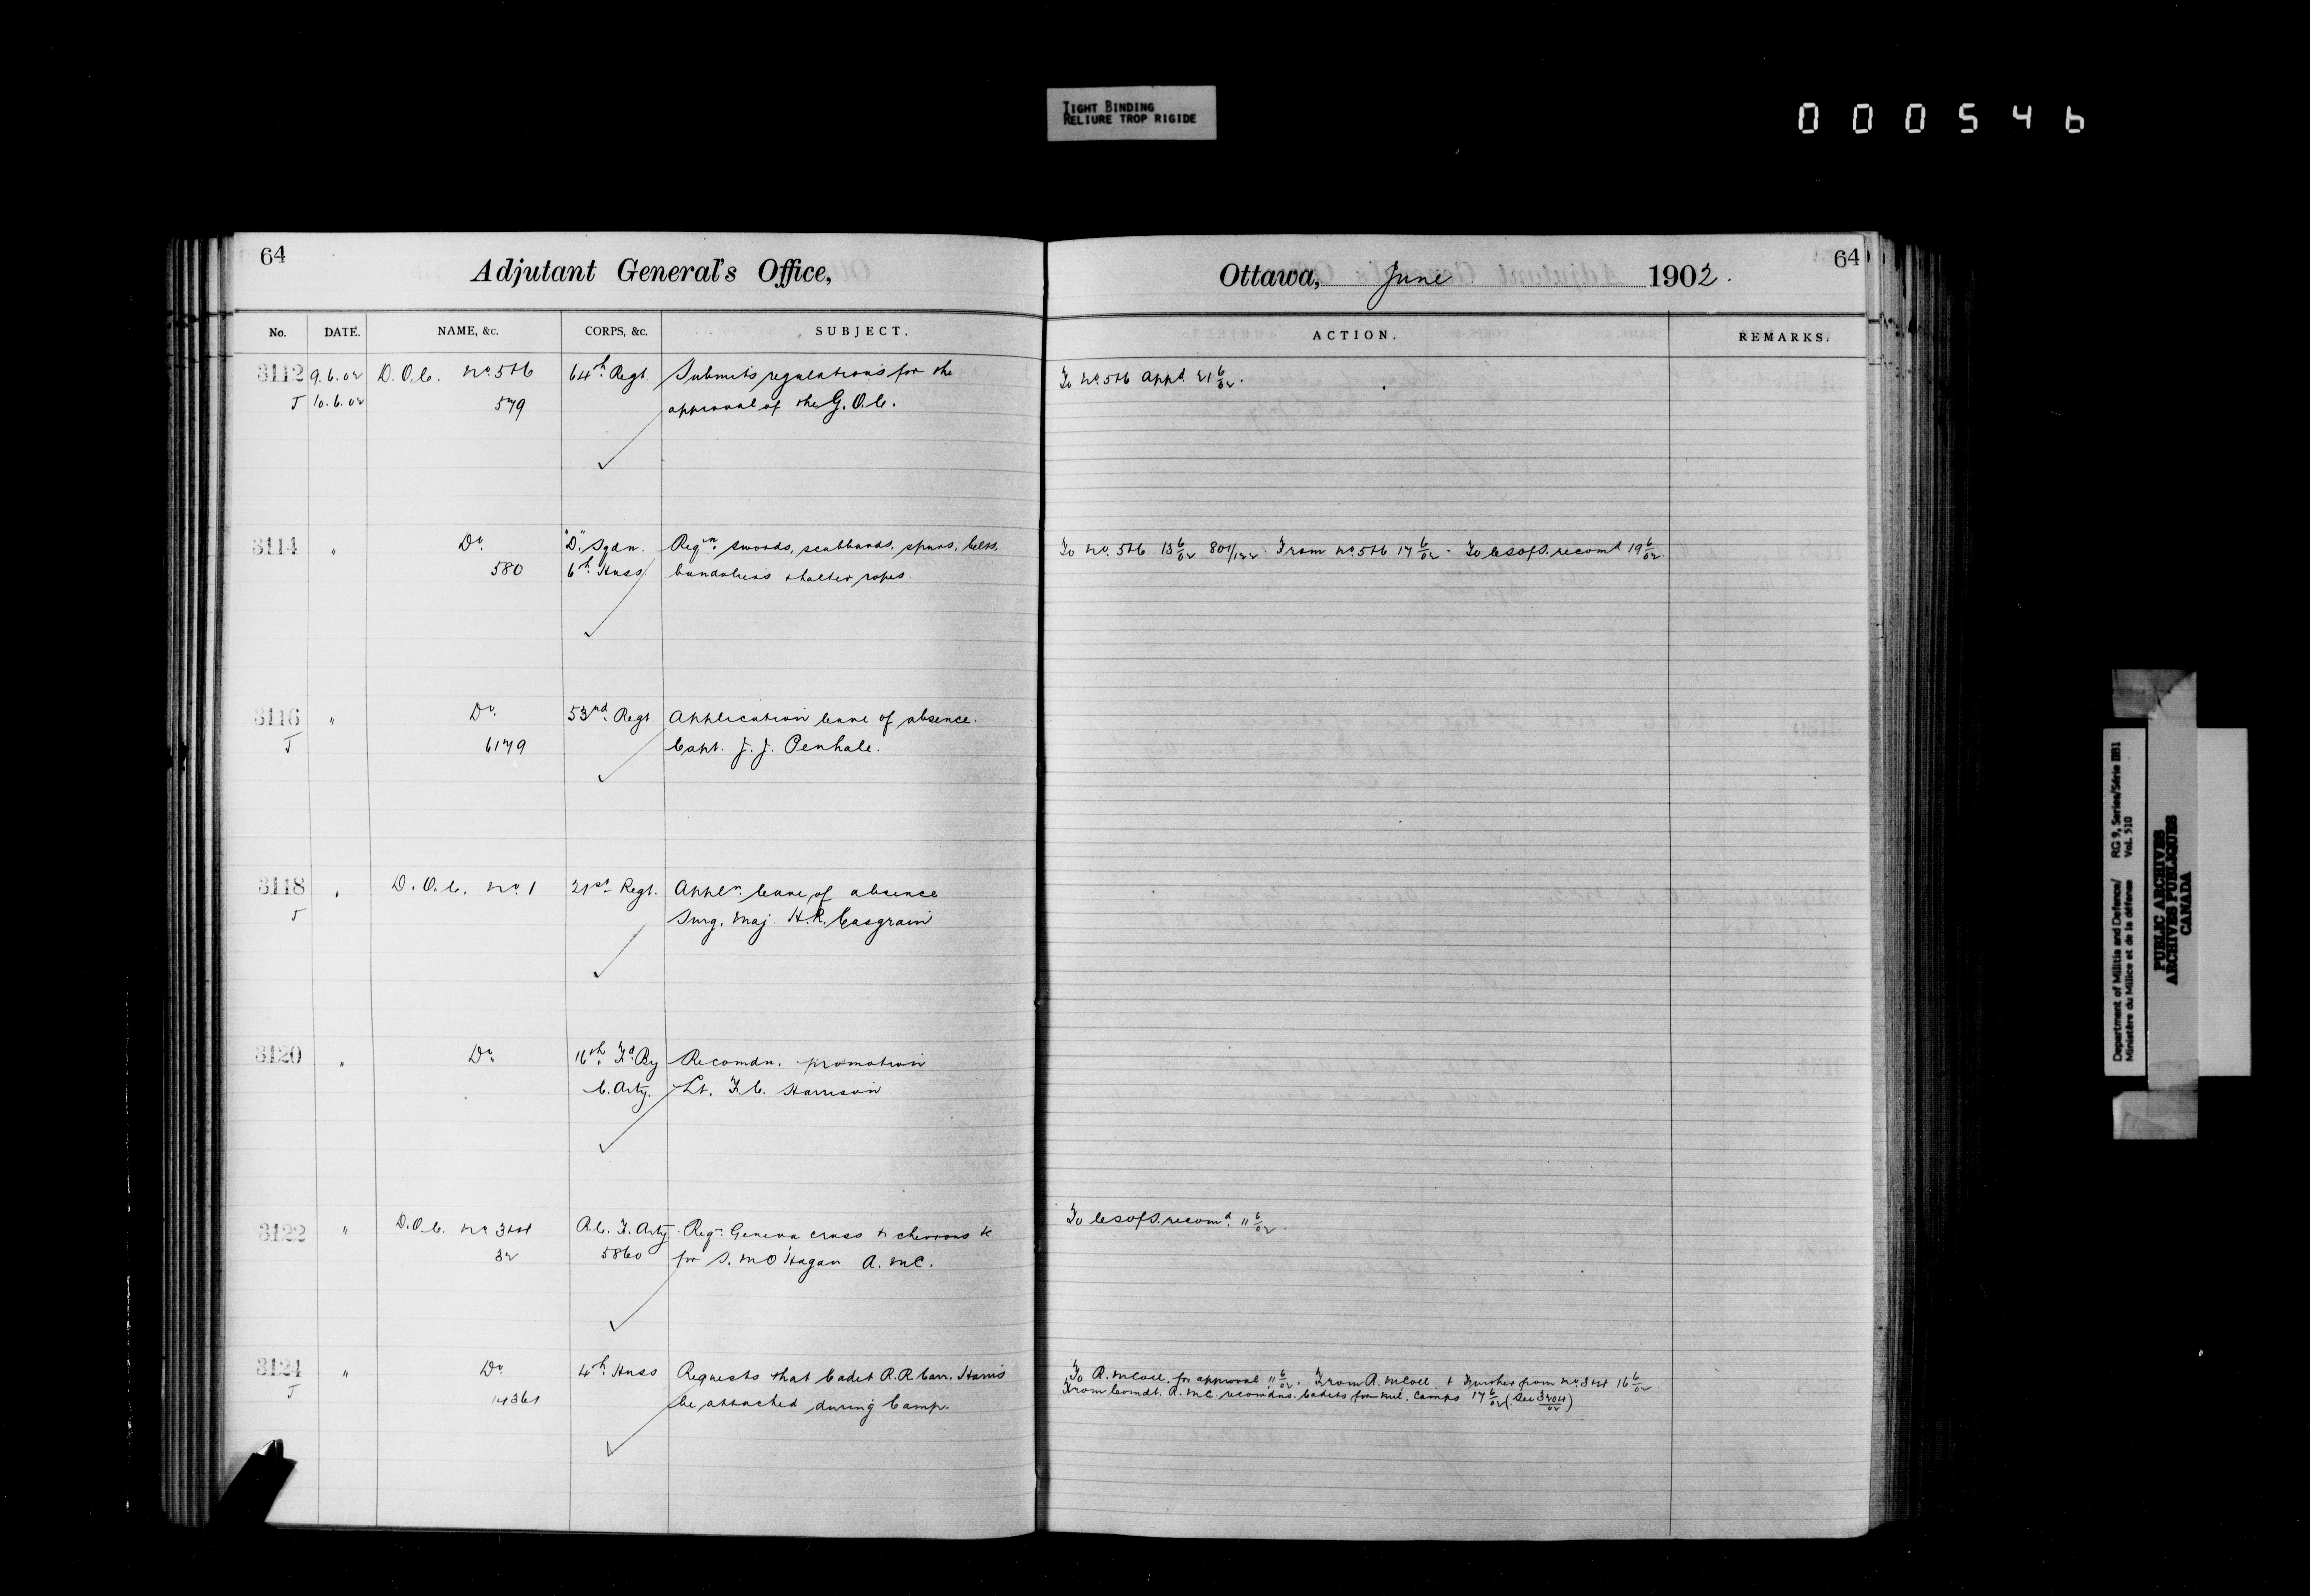 TIGHT BINDING
RELIURE TROP RIGIDE
000546
64
Adjutant General's Office,
No. DATE. NAME, &c. CORPS, &c. SUBJECT.
3112 9.6.02 D.O.C. No. 5+6 64th Regt. Submits regulations for the
J 10.6.02 579 approval of the G.O.C.
3114 " Do. "D" Sqdn. Reqn. swords, scabbards, spurs, belts,
580 6th Huss. bandoliers & halter ropes.
3116 " Do. 53rd Regt. Application leave of absence.
J 6179 Capt. J. J. Penhale.
3118 " D.O.C. No. 1 21st Regt. Appln. leave of absence
J Surg. Maj. H.R. Casgrain
3120 " Do. 16th Fd. By Recomdn. promotion
C. Arty. Lt. F.C. Harrison
3122 " D.O.C. No. 3+4 R.C.F. Arty. Reqn. Geneva cross & chevrons &c
32 5860 for S. M O'Hagan A.M.C.
3124 " Do 4th Huss Requests that Cadet R.R. Carr. Harris
J 14361 be attached during Camp.
64
Ottawa, June 1902.
ACTION. REMARKS.
To No. 5+6 appd. 21 6/02.
To No. 5+6 13 6/02 801/122. From No. 5+6 17 6/02. To C of S. recomd 19 6/02.
To C of S. recomd. 11 6/02.
To R.M.Coll. for approval 11 6/02. From R.M.Coll. & Further from No. 3+4 16 6/02
From Comdt. R.M.C. recomdns. Cadets for Mil. Camps 17 6/02 (See 3204/02)
Department of Militia and Defence/ RG 9, Series/Série IIB1
Ministère du Milice et de la défense Vol. 510
PUBLIC ARCHIVES
ARCHIVES PUBLIQUES
CANADA